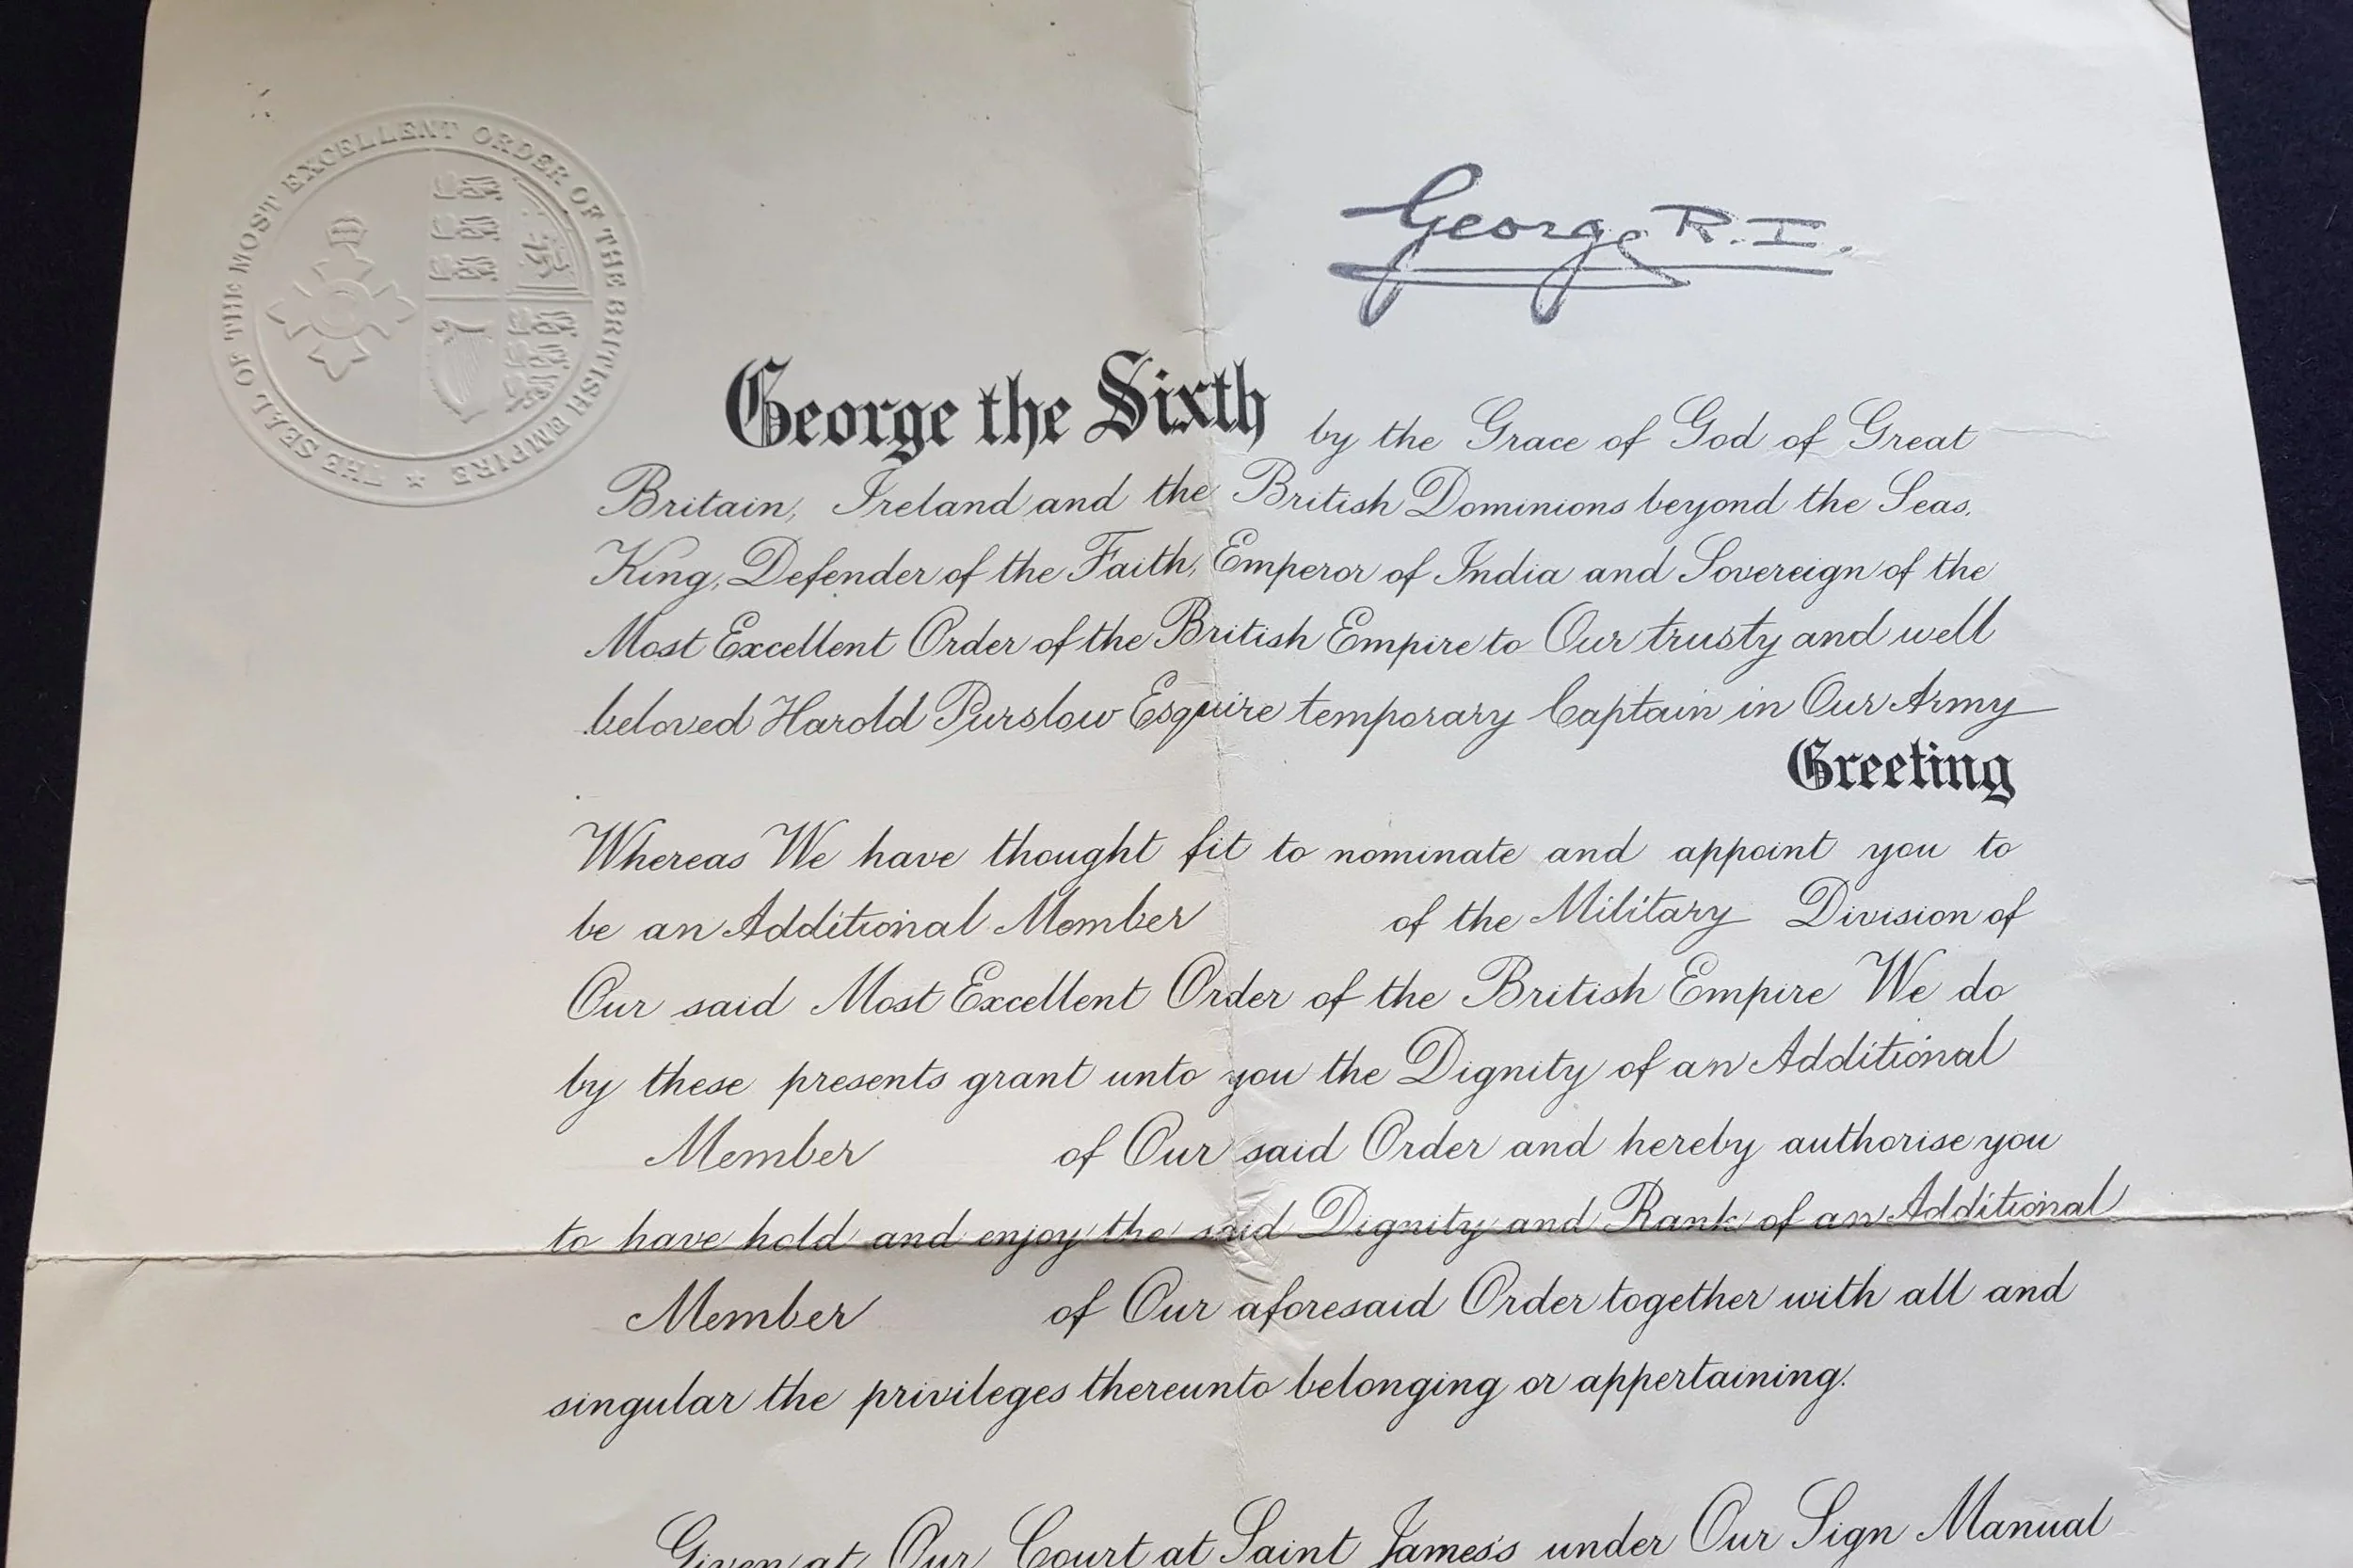 THE SEAL OF THE MOST EXCELLENT ORDER OF THE BRITISH EMPIRE
George R.I.
George the Sixth by the Grace of God of Great
Britain, Ireland and the British Dominions beyond the Seas,
King, Defender of the Faith, Emperor of India and Sovereign of the
Most Excellent Order of the British Empire to Our trusty and well
beloved Harold Purslow Esquire temporary Captain in Our Army
Greeting
Whereas We have thought fit to nominate and appoint you to
be an Additional Member of the Military Division of
Our said Most Excellent Order of the British Empire We do
by these presents grant unto you the Dignity of an Additional
Member of Our said Order and hereby authorise you
to have hold and enjoy the said Dignity and Rank of an Additional
Member of Our aforesaid Order together with all and
singular the privileges thereunto belonging or appertaining.
Given at Our Court at Saint James's under Our Sign Manual